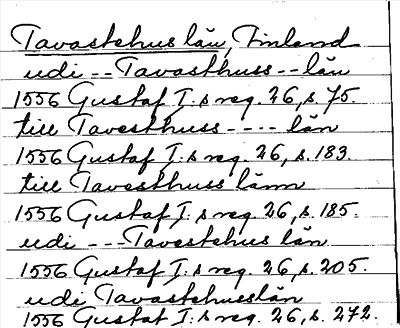 Tavastehus län, Finland
udi -- Tavasthuss -- län
1556 Gustaf I:s reg. 26, s. 75.
till Tavesthuss ---- län
1556 Gustaf I:s reg. 26, s. 183.
till Tavasthuss länn
1556 Gustaf I:s reg. 26, s. 185.
udi --- Tavestehus län
1556 Gustaf I:s reg. 26, s. 205.
udi Tavastehusslän
1556 Gustaf I:s reg. 26, s. 272.